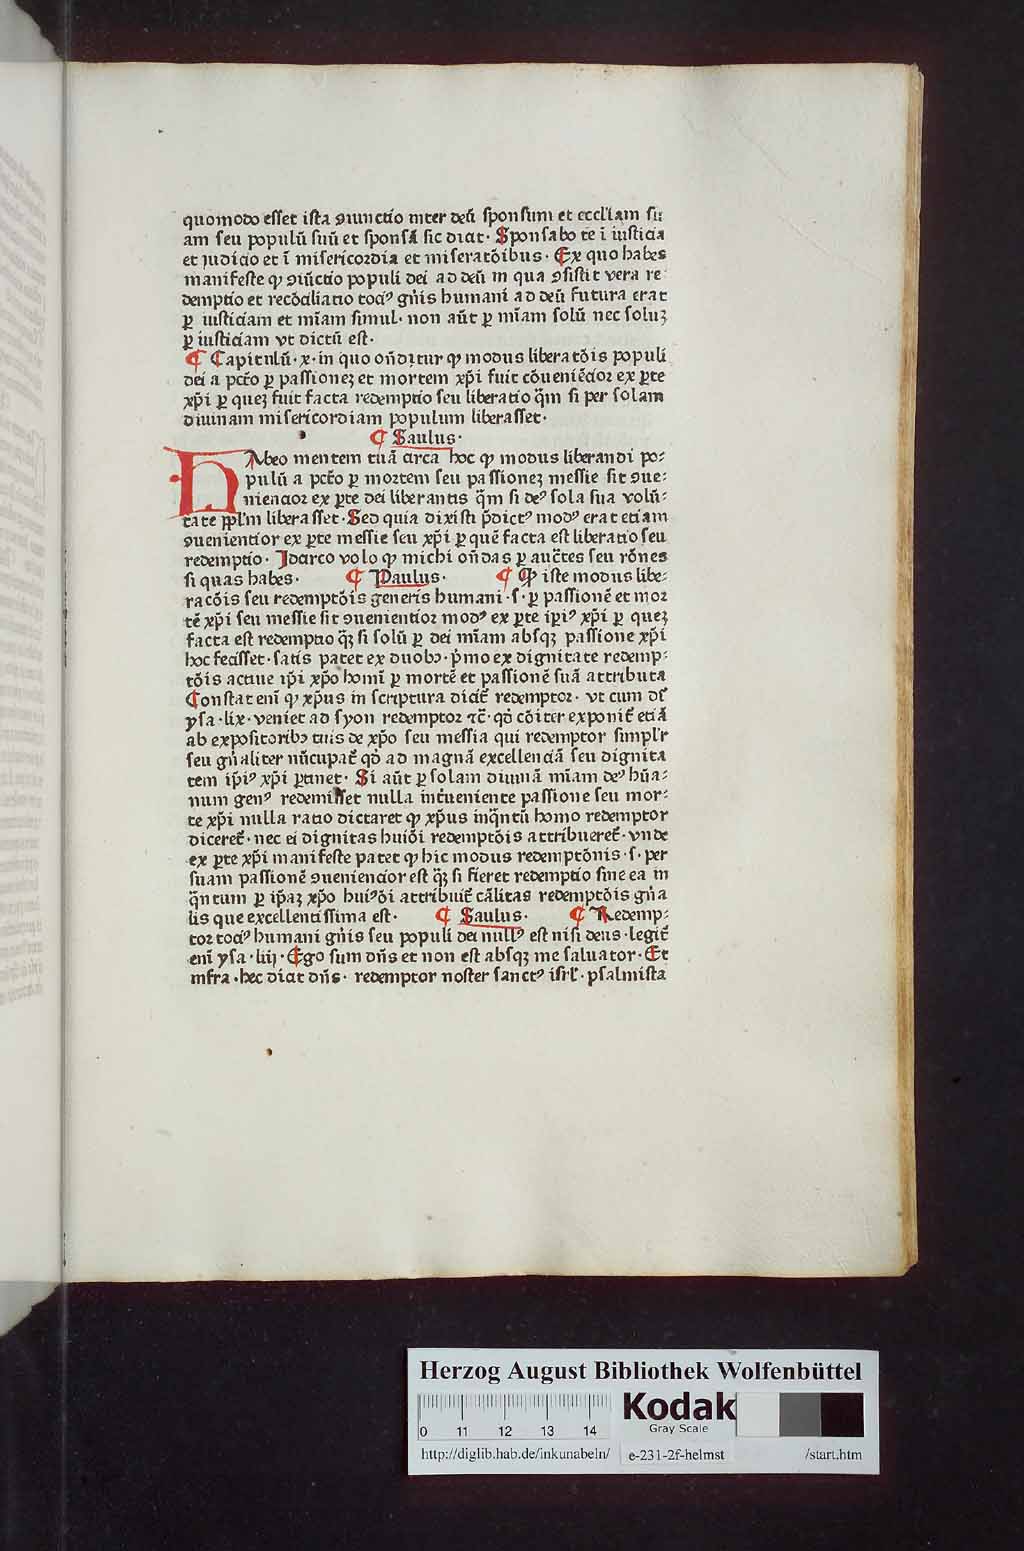 quomodo esset ista ꝯiunctio inter deū sponsum et eccl'iam su
am seu populū suū et sponsā sic dicit· Sponsabo te ī iusticia
et judicio et ī misericordia et miseratōibus· Ex quo habes
manifeste ꝙ ꝯiūctio populi dei ad deū in qua ꝯsistit vera re
demptio et recōciliatio tociꝰ gn̄is humani ad deū futura erat
ꝑ iusticiam et mīam simul· non aūt ꝑ mīam solū nec soluꝫ
ꝑ iusticiam vt dictū est·
¶ Capitulū· x· in quo on̄ditur ꝙ modus liberatōis populi
dei a pctō ꝑ passioneꝫ et mortem xp̄i fuit cōueniēcior ex ꝑte
xp̄i ꝑ queꝫ fuit facta redemptio seu liberatio q̄m si per solam
diuinam misericordiam populum liberasset·
¶ Saulus·
HAbeo mentem tuā circa hoc ꝙ modus liberandi po⸗
pulū a pctō ꝑ mortem seu passioneꝫ messie sit ꝯue⸗
niencior ex ꝑte dei liberantis q̄m si deꝰ sola sua volū⸗
tate ppl'm liberasset· Sed quia dixisti p̄dictꝰ modꝰ erat etiam
ꝯuenientior ex ꝑte messie seu xp̄i ꝑ quē facta est liberatio seu
redemptio· Idarco volo ꝙ michi on̄das ꝑ auc̄tes seu rōnes
si quas habes· ¶ Paulus· ¶ Ꝙ iste modus libe⸗
racōis seu redemptōis generis humani· s· ꝑ passionē et mor
tē xp̄i seu messie sit ꝯuenientior modꝰ ex ꝑte ip̄iꝰ xp̄i ꝑ queꝫ
facta est redemptio q̄ꝫ si solū ꝑ dei mīam absqꝫ passione xp̄i
hoc fecisset· satis patet ex duobꝰ· p̄mo ex dignitate redemp⸗
tōis actiue ip̄i xp̄o homī ꝑ mortē et passionē suā attributa
Constat enī ꝙ xp̄us in scriptura dicit̄ redemptor· vt cum dr̄
ysa· lix· veniet ad syon redemptor ⁊c̄· qd̄ cōiter exponit̄ etiā
ab expositoribꝰ tuis de xp̄o seu messia qui redemptor simpl'r
seu gn̄aliter nūcupat̄ qd̄ ad magnā excellenciā seu dignita
tem ip̄iꝰ xp̄i ꝑtinet· Si aūt ꝑ solam diuinā mīam deꝰ hūa⸗
num genꝰ redemisset nulla int̄ueniente passione seu mor⸗
te xp̄i nulla ratio dictaret ꝙ xp̄us inq̄ntū homo redemptor
diceret̄· nec ei dignitas huiōi redemptōis attribueret̄· vnde
ex ꝑte xp̄i manifeste patet ꝙ hic modus redemptōnis· s· per
suam passionē ꝯueniencior est q̄ꝫ si fieret redemptio sine ea in
q̄ntum ꝑ ip̄aꝫ xp̄o huiꝰōi attribuit̄ cālitas redemptōis gn̄a
lis que excellentissima est· ¶ Saulus· ¶ Redemp⸗
tor tociꝰ humani gn̄is seu populi dei nullꝰ est nisi deus· legit̄
enī ysa· liij· Ego sum dn̄s et non est absqꝫ me saluator· Et
infra· hec dicit dn̄s· redemptor noster sanctꝰ isrl̄· psalmista
Herzog August Bibliothek Wolfenbüttel
0 11 12 13 14
Kodak
Gray Scale
http://diglib.hab.de/inkunabeln/ e-231-2f-helmst /start.htm